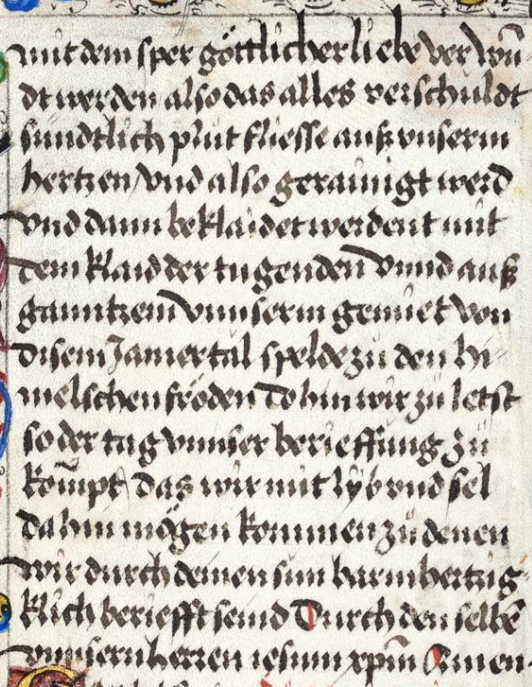 mit dem sper göttlicher liebe ver wū
dt werden also das alles verschuldt
sundtlich plůt fliesse auß vnserm
hertzen / vnd also gerainigt werd
vnd dann beklaidet werdent mit
dem klaid der tugenden vnnd auß
ganntzem vnnserm gemüet von
disem Jamertal zů den hi
melschen fröden Do hin wir zu letst
so der tag vnnser berieffung zů
kompt das wir mit lyb vnd sel
dahin mögen kommen zů denen
wir durch deinen sun barmhertzig
klich beriefft seind Durch den selbē
vnnsern herren iesum xp̄m Amen